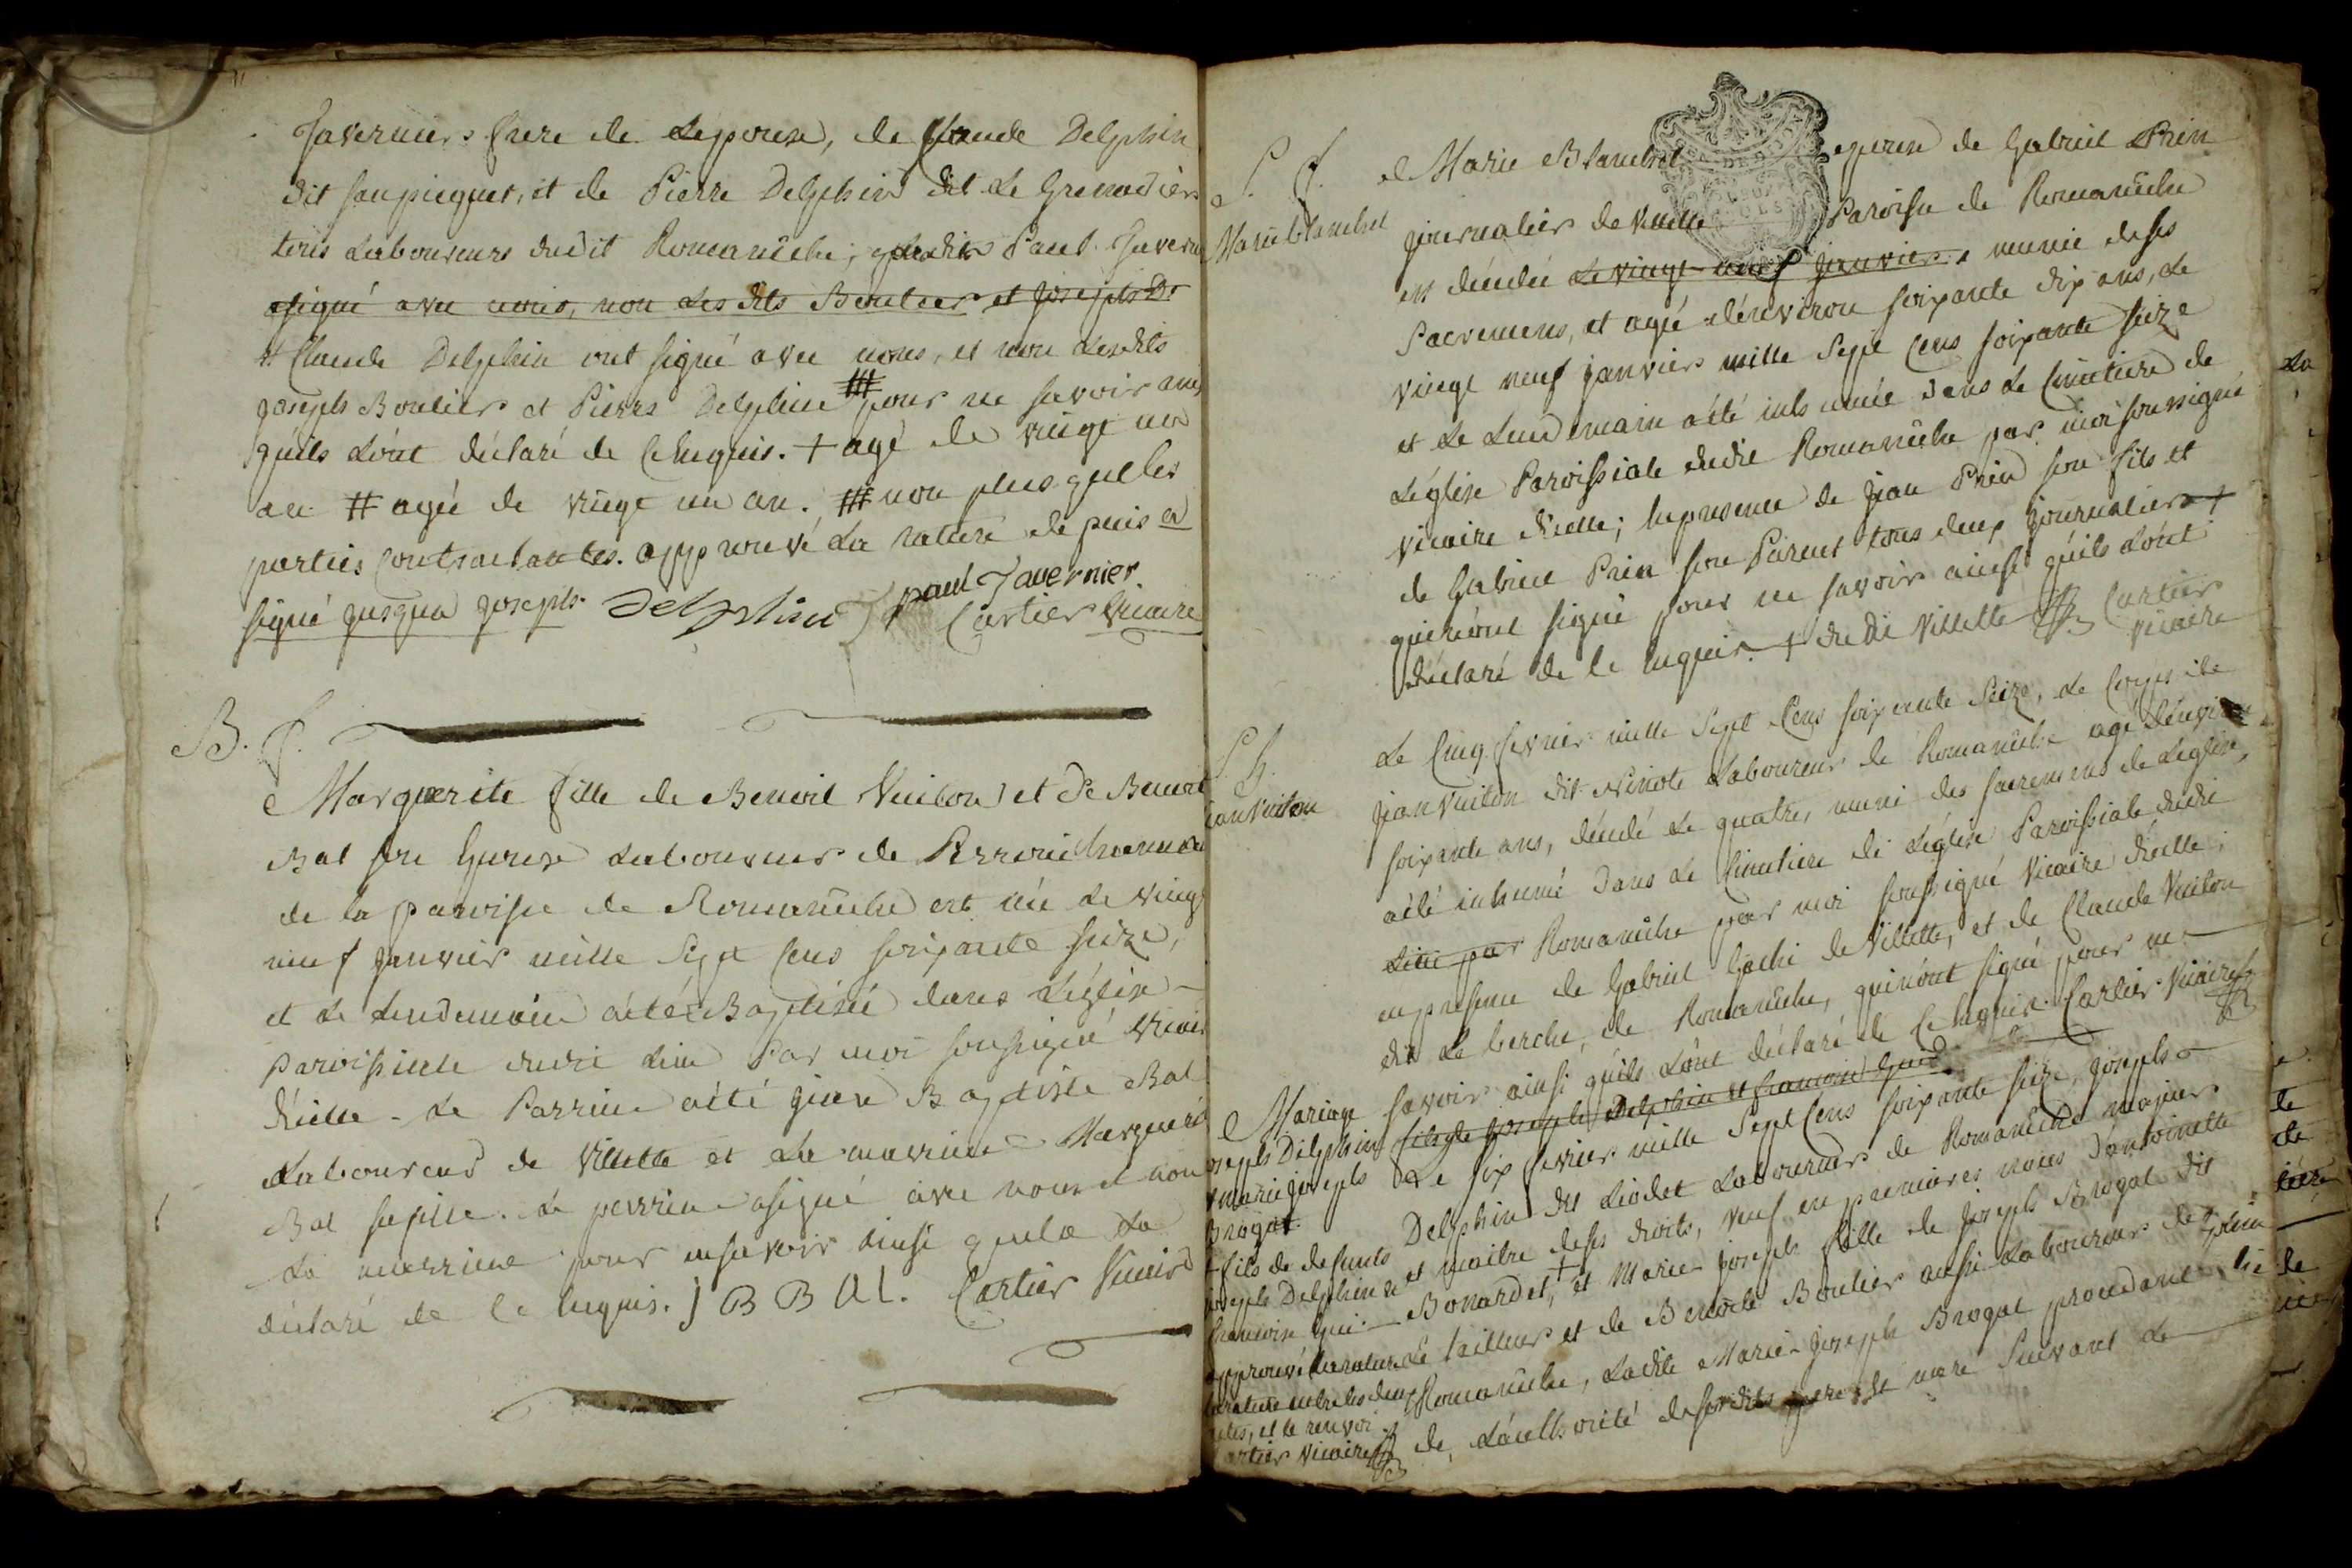 Javernier frere de Lepouse, de Claude Delphin
dit sanpicquet, et de Pierre Delphin dit Le Grenadier
tous Laboureurs dudit Romanêche; Paul Javernier
asigné avec nous, non Les dits Boulier et Joseph D
# Claude Delphin ont signé avec nous, et non Lesdits
Joseph Boulier et Pierre Delphin # pour ne savoir ainsi
quils Lont déclaré de ce Enquis. + agé de vingt un
an # agée de vingt un an. # non plus que les
parties contractantes. approuvé La rature depuis a
signé jusqua joseph. Delphin J paul Javernier
Cartier Vicaire
B. f.
Marguerite fille de Benoit Vuiton et de Benoite
Bal son Epouse Laboureur de
de la paroisse de Romanêche est née Le vingt
neuf janvier mille Sept Cens soixante seize,
et Le Lendemain aété Baptisée dans L'église
Paroissiale dudit Lieu Par moi soussigné Vicaire
d'icelle. Le Parrin aété jean Baptiste Bal
Laboureur de Villette et La marrine Marguerite
Bal sa fille. Le perrin asigné avec nous et non
La marrine pour ne savoir ainsi quelle La
déclaré de ce Enquis. J B B A L. Cartier Vicaire
S. f.
Marie blanchet
Marie Blanchet epouse de Gabriel Prin
journalier de Villette Paroisse de Romanêche
est décédée Le vingt neuf janvier munie de ses
Sacremens, et agée d'environ soixante dix ans, Le
vingt neuf janvier mille Sept Cens soixante seize
et Le Lendemain aété inhumée dans Le Cimetiere de
L'église Paroissiale dudit Romanêche par moi soussigné
Vicaire d'icelle; en presence de jean Prin son fils et
de Gabriel Prin son Parent tous deux journaliers +
qui nont signé pour ne savoir ainsi quils Lont
déclaré de ce enquis. + dudit Villette Cartier
vicaire
S. h.
jean Vuiton
Le Cinq fevrier mille Sept Cens soixante Seize, Le Corps de
jean Vuiton dit Ninote Laboureur de Romanêche agé d'environ
soixante ans, décédé Le quatre, muni des sacremens de L'église,
aété inhumé dans Le Cimetiere de L'église Paroissiale dudit
Lieu par Romanêche par moi soussigné Vicaire d'icelle;
en presence de Gabriel Gachi de Villette, et de Claude Vuiton
dit La berche, de Romanêche, qui nont signé pour ne
savoir ainsi quils Lont déclaré de Ce Enquis. Cartier Vicaire
Mariage
joseph Delphin
et marie joseph
Brogat
fils de joseph Delphin et francoise Gui
Le six fevrier mille Sept Cens soixante seize, joseph
Delphin dit Liodet Laboureur de Romanêche majeur
et maitre de ses droits, veuf en premieres noces d'antoinette
Bonardet, + et Marie joseph fille de joseph Brogat dit
Le tailleur et de Benoite Boulier aussi Laboureur de
Romanêche, Ladite Marie joseph Brogat procedante
de L'authorité de sesdits pere et mere suivant Le
+ fils de defunts
joseph Delphin et
francoise Gui
approuvé La rature
La rature entre les deux
actes, et le renvoi.
Cartier Vicaire